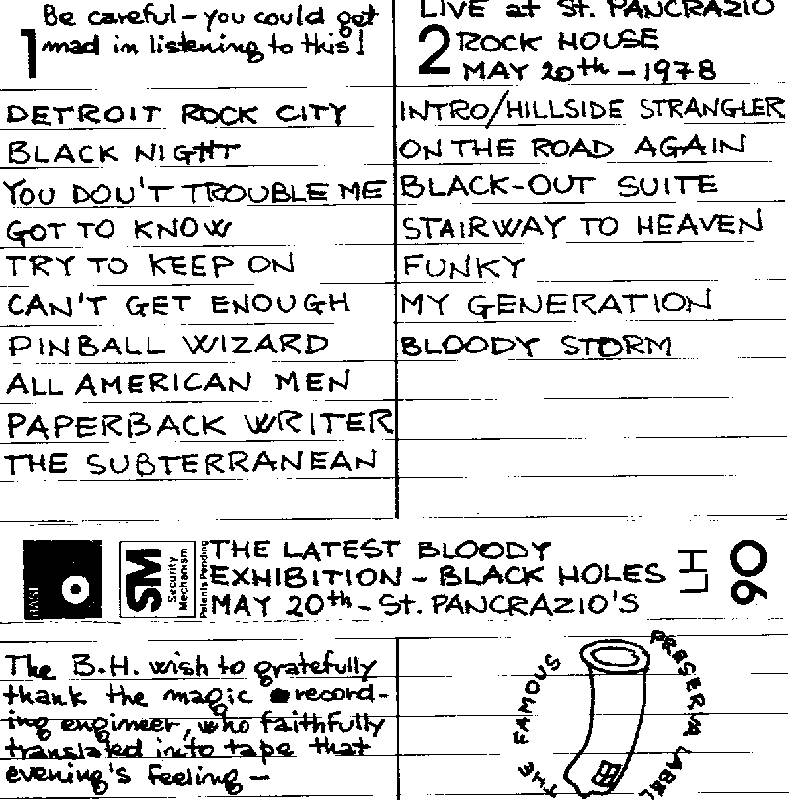 Be careful - you could get
1 mad in listening to this!
DETROIT ROCK CITY
BLACK NIGHT
YOU DOU'T TROUBLE ME
GOT TO KNOW
TRY TO KEEP ON
CAN'T GET ENOUGH
PINBALL WIZARD
ALL AMERICAN MEN
PAPERBACK WRITER
THE SUBTERRANEAN
LIVE at St. PANCRAZIO
2 ROCK HOUSE
MAY 20th - 1978
INTRO/HILLSIDE STRANGLER
ON THE ROAD AGAIN
BLACK-OUT SUITE
STAIRWAY TO HEAVEN
FUNKY
MY GENERATION
BLOODY STORM
BASF
SM
Security
Mechanism
Patents Pending
THE LATEST BLOODY
EXHIBITION - BLACK HOLES
MAY 20th - St. PANCRAZIO'S
LH
90
The B.H. wish to gratefully
thank the magic record-
ing engineer, who faithfully
translated into tape that
evening's feeling -
THE FAMOUS PRESERVA LABEL